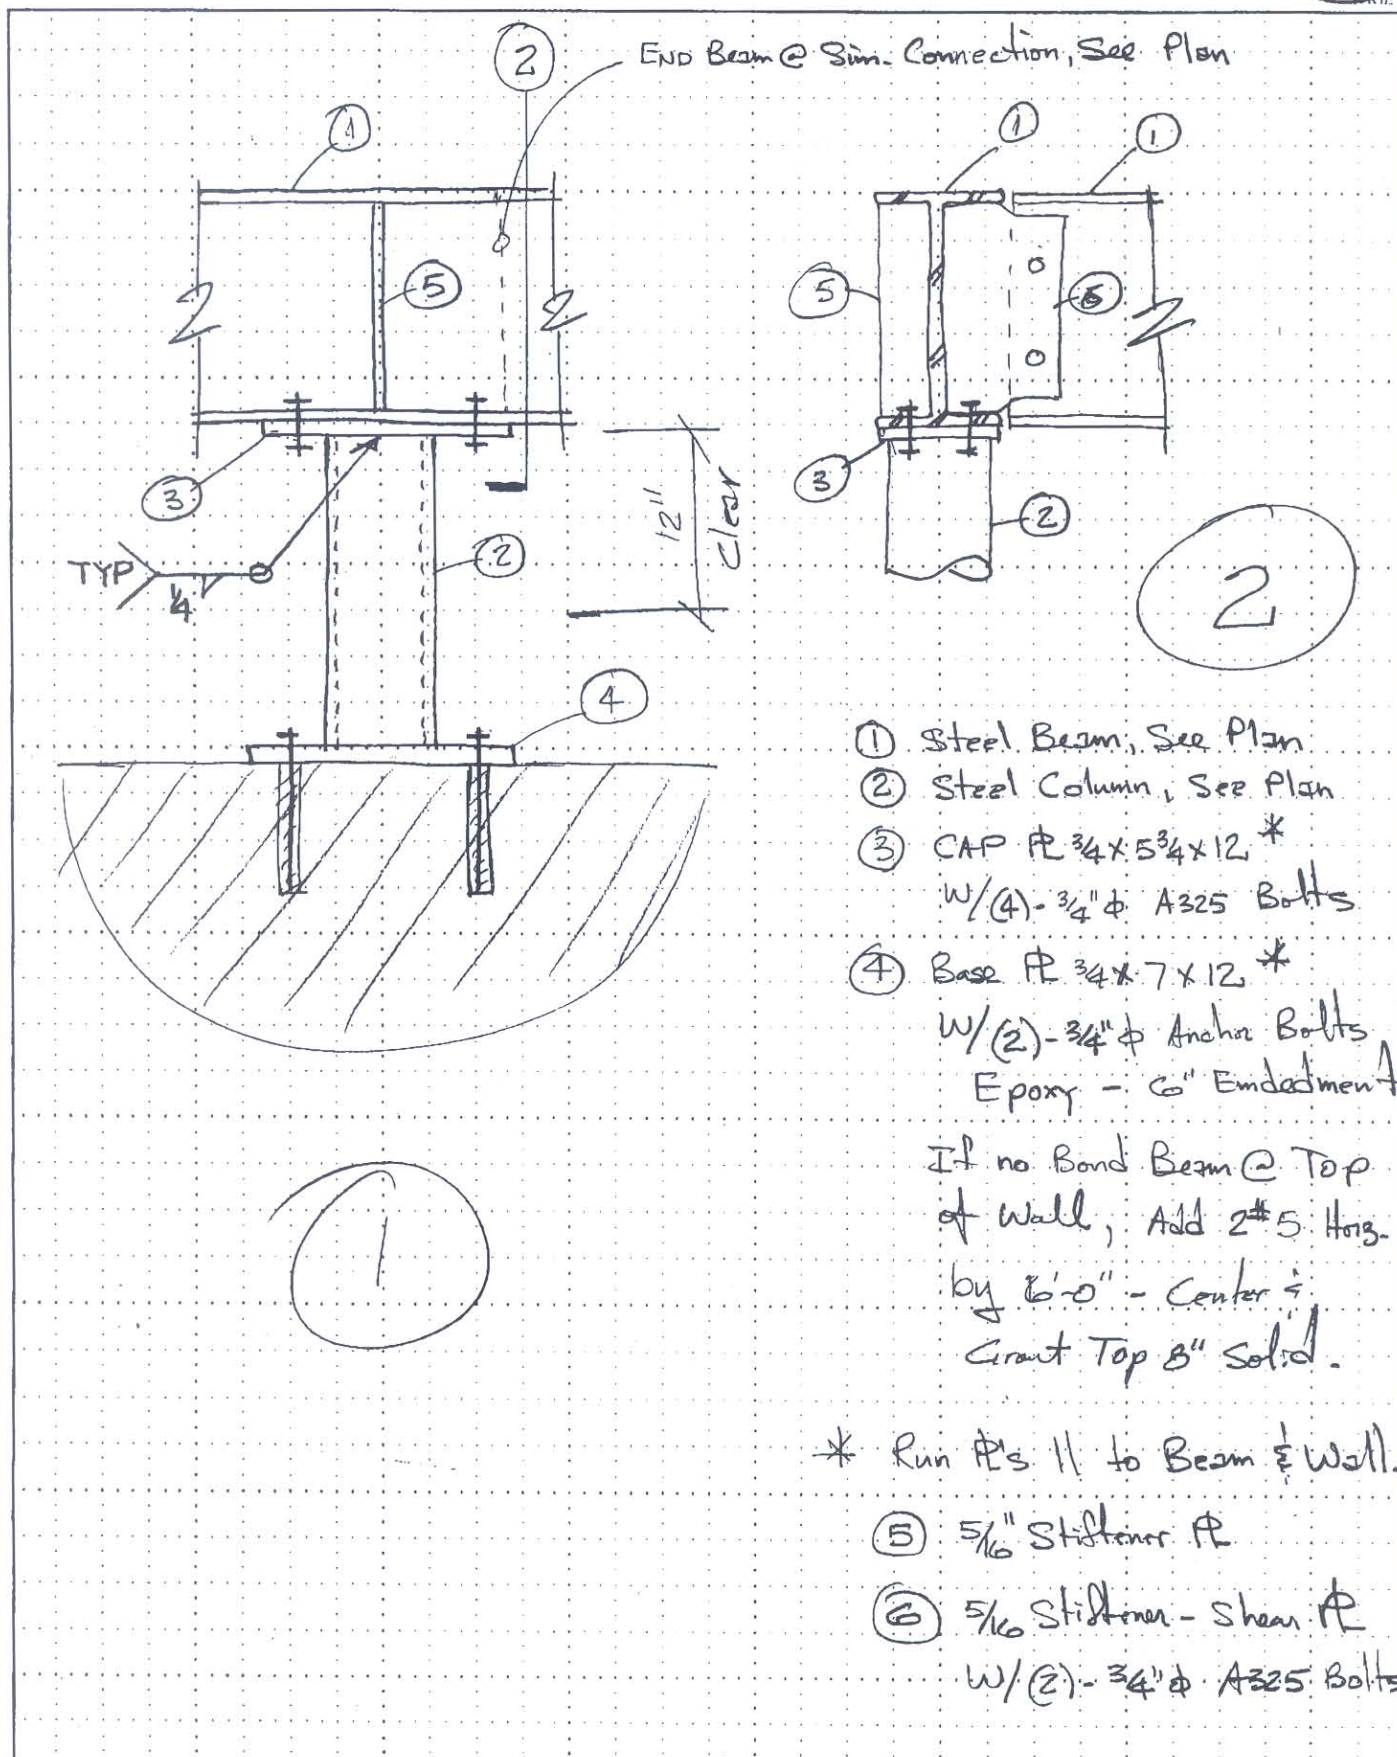 2
END Beam @ Sim. Connection, See Plan
1
1
1
5
5
6
3
3
2
2
12"
Clear
TYP
1/4
2
4
① Steel Beam, See Plan
② Steel Column, See Plan
③ CAP PL 3/4 x 5 3/4 x 12 *
W/(4)- 3/4"ϕ A325 Bolts
④ Base PL 3/4 x 7 x 12 *
W/(2)- 3/4"ϕ Anchor Bolts
Epoxy - 6" Emdedment
If no Bond Beam @ Top
of Wall, Add 2#5 Horz.
by 6'-0" - Center &
Grout Top 8" Solid.
1
* Run PL's || to Beam & Wall.
⑤ 5/16" Stiffener PL
⑥ 5/16 Stiffener - Shear PL
W/(2)- 3/4"ϕ A325 Bolts